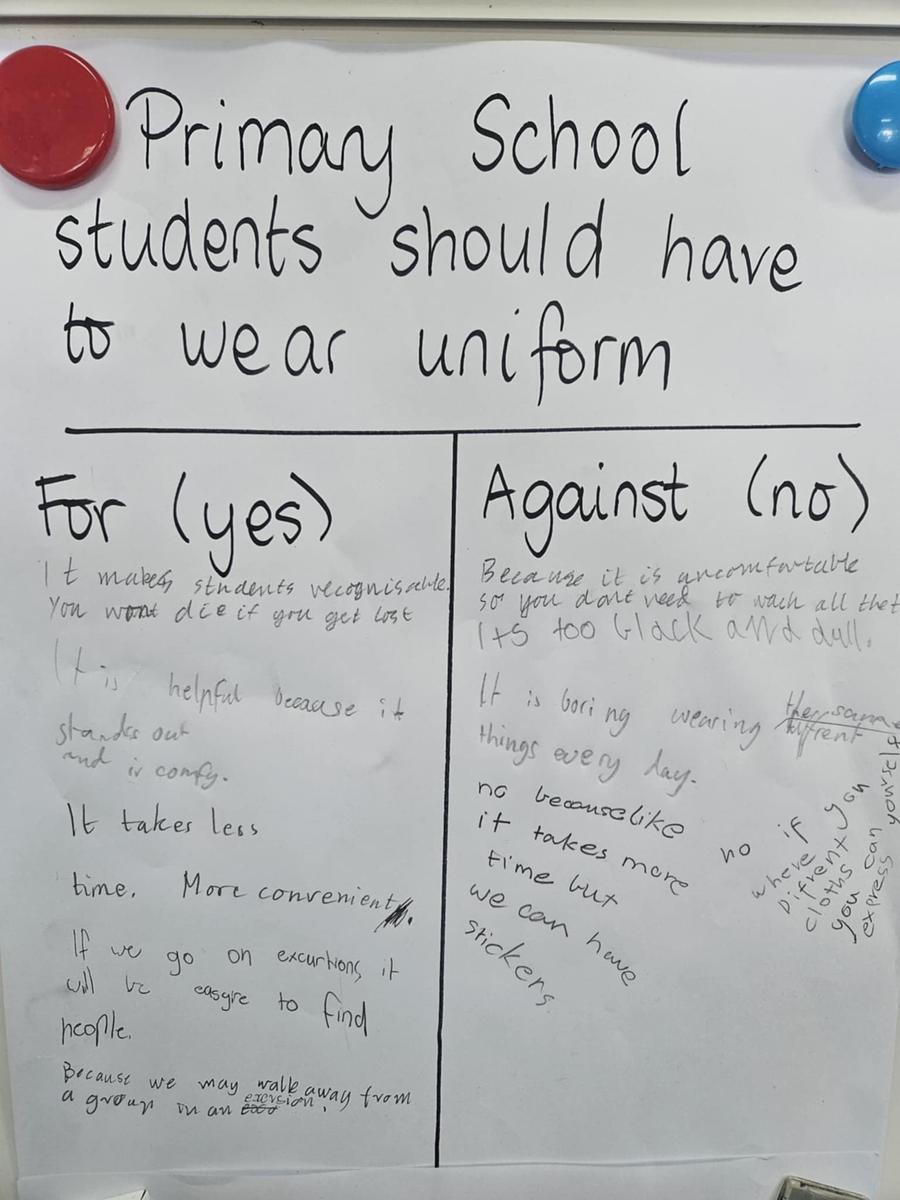 Primary School
students should have
to wear uniform
For (yes)
It makes students recognisable.
You wont die if you get lost
It is helpful because it
stands out
and is comfy.
It takes less
time. More convenient.
If we go on excurtions, it
will be easgre to find
people.
Because we may walk away from
a group on an excrsion.
Against (no)
Because it is uncomfortable
so you dont need to wach all that
Its too black and dull.
It is boring wearing the same
things every day.
no because like
it takes more
time but
we can have
stickers
no if
you
where
Difrent
cloths
you can
express yourself